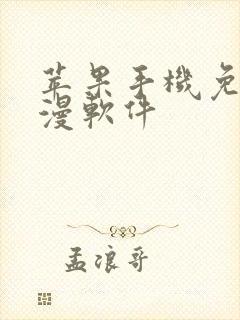 苹果手機免
漫軟件
孟浪哥